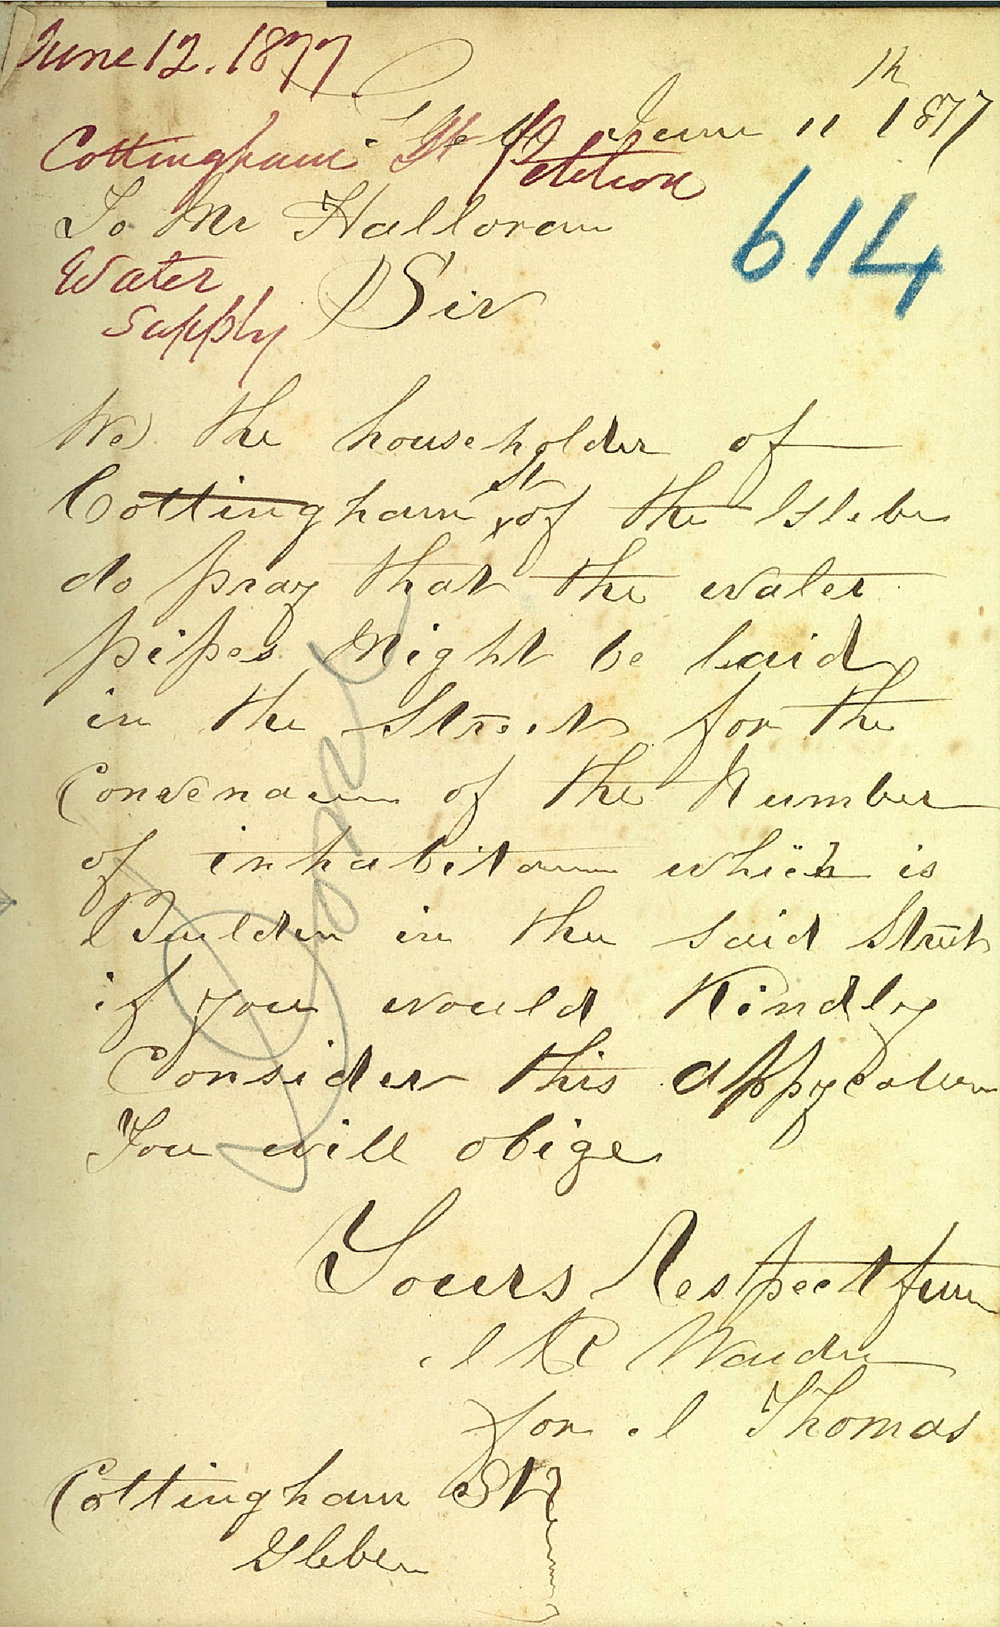 June 12. 1877
June 11th 1877
Cottingham St Petition
614
To Mr Halloran
Water
Supply
Sir
We the householder of
Cottingham St of the Glebe
do pray that the water
pipes Might be laid
in the Street for the
of the Number
of which is
in the said Street
if you would Kindly
Consider this
You will obige
Yours Respectfuu
for J Thomas
Cottingham St
Glebe
Done